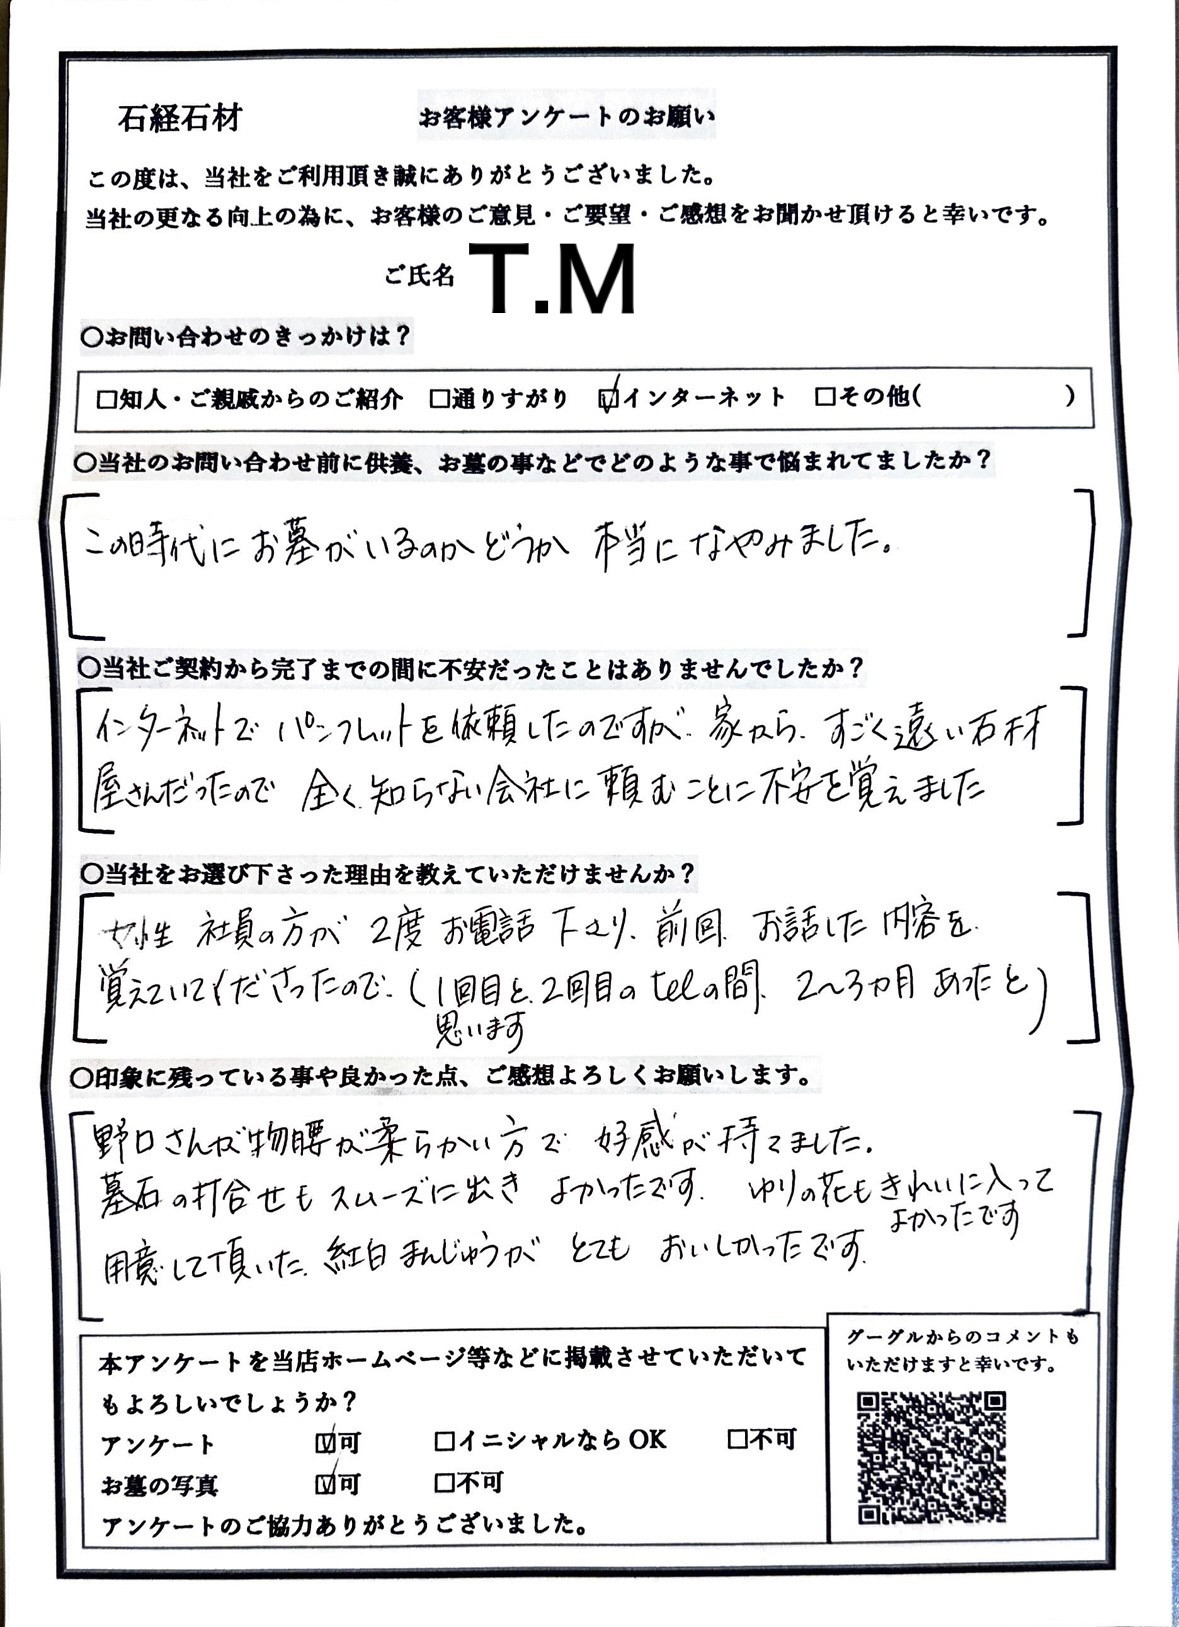 石経石材 お客様アンケートのお願い
この度は、当社をご利用頂き誠にありがとうございました。
当社の更なる向上の為に、お客様のご意見・ご要望・ご感想をお聞かせ頂けると幸いです。
ご氏名 T.M
〇お問い合わせのきっかけは？
□知人・ご親戚からのご紹介 □通りすがり ☑インターネット □その他( )
〇当社のお問い合わせ前に供養、お墓の事などでどのような事で悩まれてましたか？
この時代にお墓がいるのかどうか 本当になやみました。
〇当社ご契約から完了までの間に不安だったことはありませんでしたか？
インターネットで パンフレットを依頼したのですが、家から、すごく遠い石材
屋さんだったので 全く知らない会社に頼むことに不安を覚えました
〇当社をお選び下さった理由を教えていただけませんか？
女性 社員の方が 2度 お電話 下さり、前回、お話した 内容を
覚えていてくださったので、(1回目と、2回目のtelの間、2〜3ヵ月 あったと
思います)
〇印象に残っている事や良かった点、ご感想よろしくお願いします。
野口さんが物腰が柔らかい方で 好感が持てました。
墓石の打合せも スムーズに出き よかったです。 ゆりの花もきれいに入って
よかったです
用意して頂いた、紅白まんじゅうが とても おいしかったです。
本アンケートを当店ホームページ等などに掲載させていただいて
もよろしいでしょうか？
アンケート ☑可 □イニシャルなら OK □不可
お墓の写真 ☑可 □不可
アンケートのご協力ありがとうございました。
グーグルからのコメントも
いただけますと幸いです。